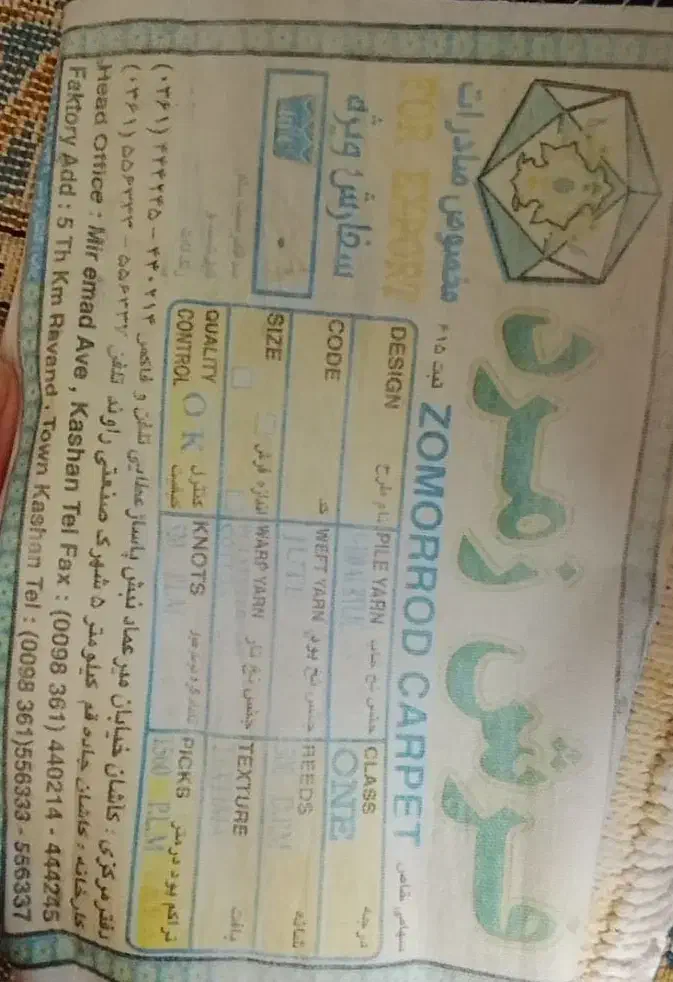 فرش زمرد
مخصوص صادرات
FOR EXPORT
سفارش ویژه
ثبت ۶۱۵ ZOMORROD CARPET سهامی خاص
DESIGN نام طرح PILE YARN CLASS درجه
ONE
CODE کد WEFT YARN جنس نخ پود REEDS شانه
JUTE
SIZE اندازه فرش WARP YARN جنس نخ تار TEXTURE بافت
QUALITY CONTROL OK کنترل کیفیت KNOTS PICKS تراکم پود در متر
P.L.M
دفتر مرکزی : کاشان خیابان میر عماد نبش پاساژ عطایی تلفن و فاکس ۴۴۰۲۱۴ - ۴۴۴۲۴۵ (۰۳۶۱)
کارخانه : کاشان جاده قم کیلومتر ۵ شهرک صنعتی راوند تلفن ۵۵۶۳۳۷ - ۵۵۶۳۳۳ (۰۳۶۱)
Head Office : Mir emad Ave , Kashan Tel Fax : (0098 361) 440214 - 444245
Faktory Add : 5 Th Km Ravand . Town Kashan Tel : (0098 361)556333 - 556337